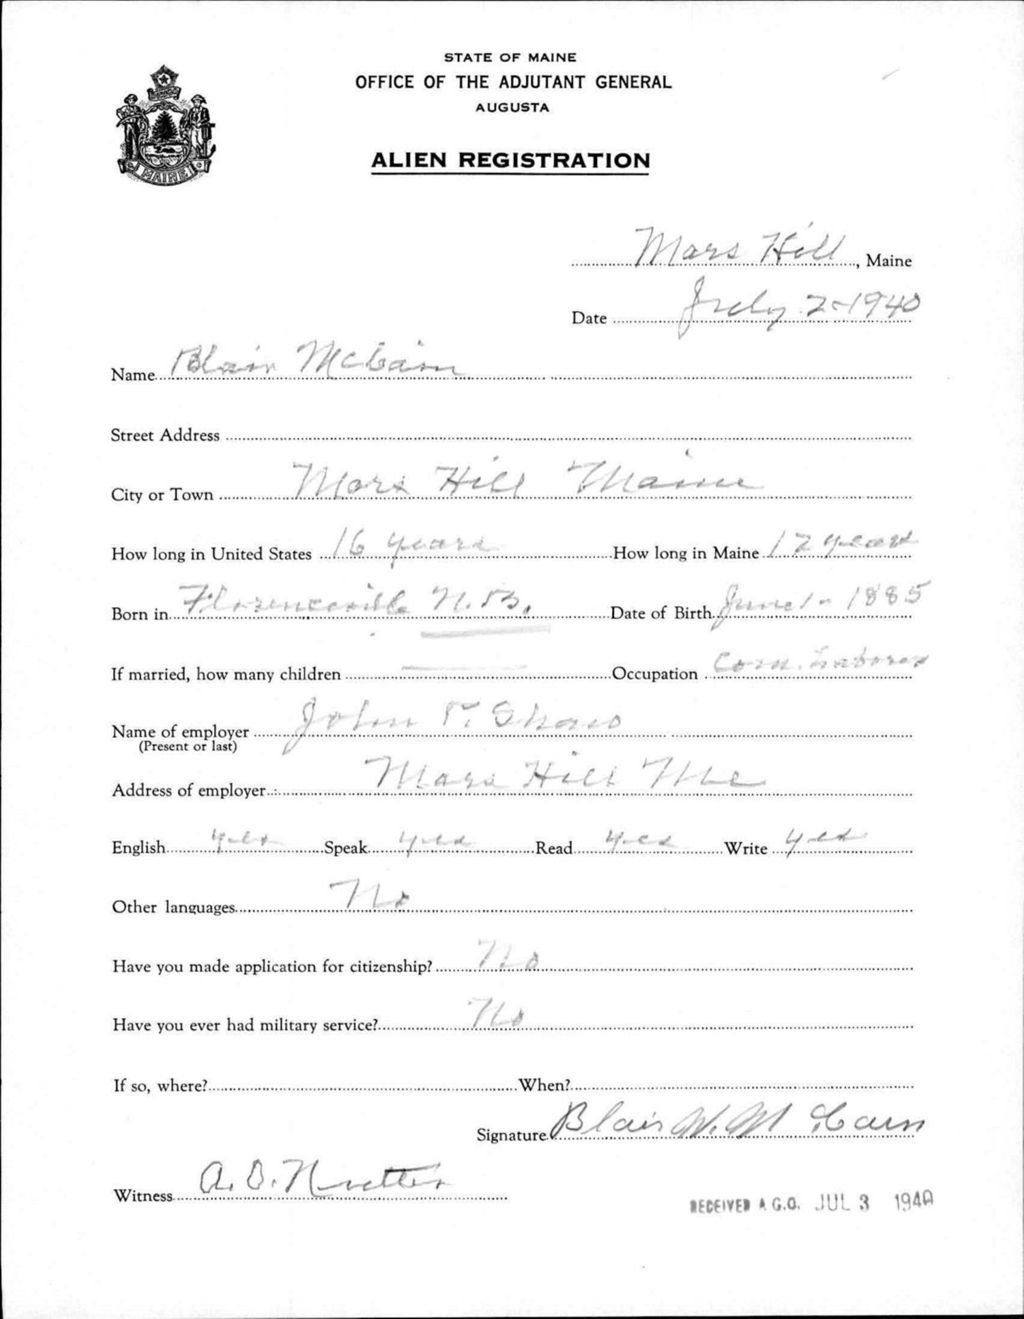 STATE OF MAINE
OFFICE OF THE ADJUTANT GENERAL
AUGUSTA
ALIEN REGISTRATION
MAINE
Mars Hill, Maine
Date July 2-1940
Name Blair McCain
Street Address
City or Town Mars Hill Maine
How long in United States 16 years How long in Maine 12 years
Born in Florenceville N.B. Date of Birth June 1 - 1885
If married, how many children Occupation Com. Laborer
Name of employer John P. Shaw
(Present or last)
Address of employer Mars Hill Me
English yes Speak yes Read yes Write yes
Other languages No
Have you made application for citizenship? No
Have you ever had military service? No
If so, where? When?
Signature Blair W. McCain
Witness A. D. Nutter
RECEIVED A.G.O. JUL 3 1940